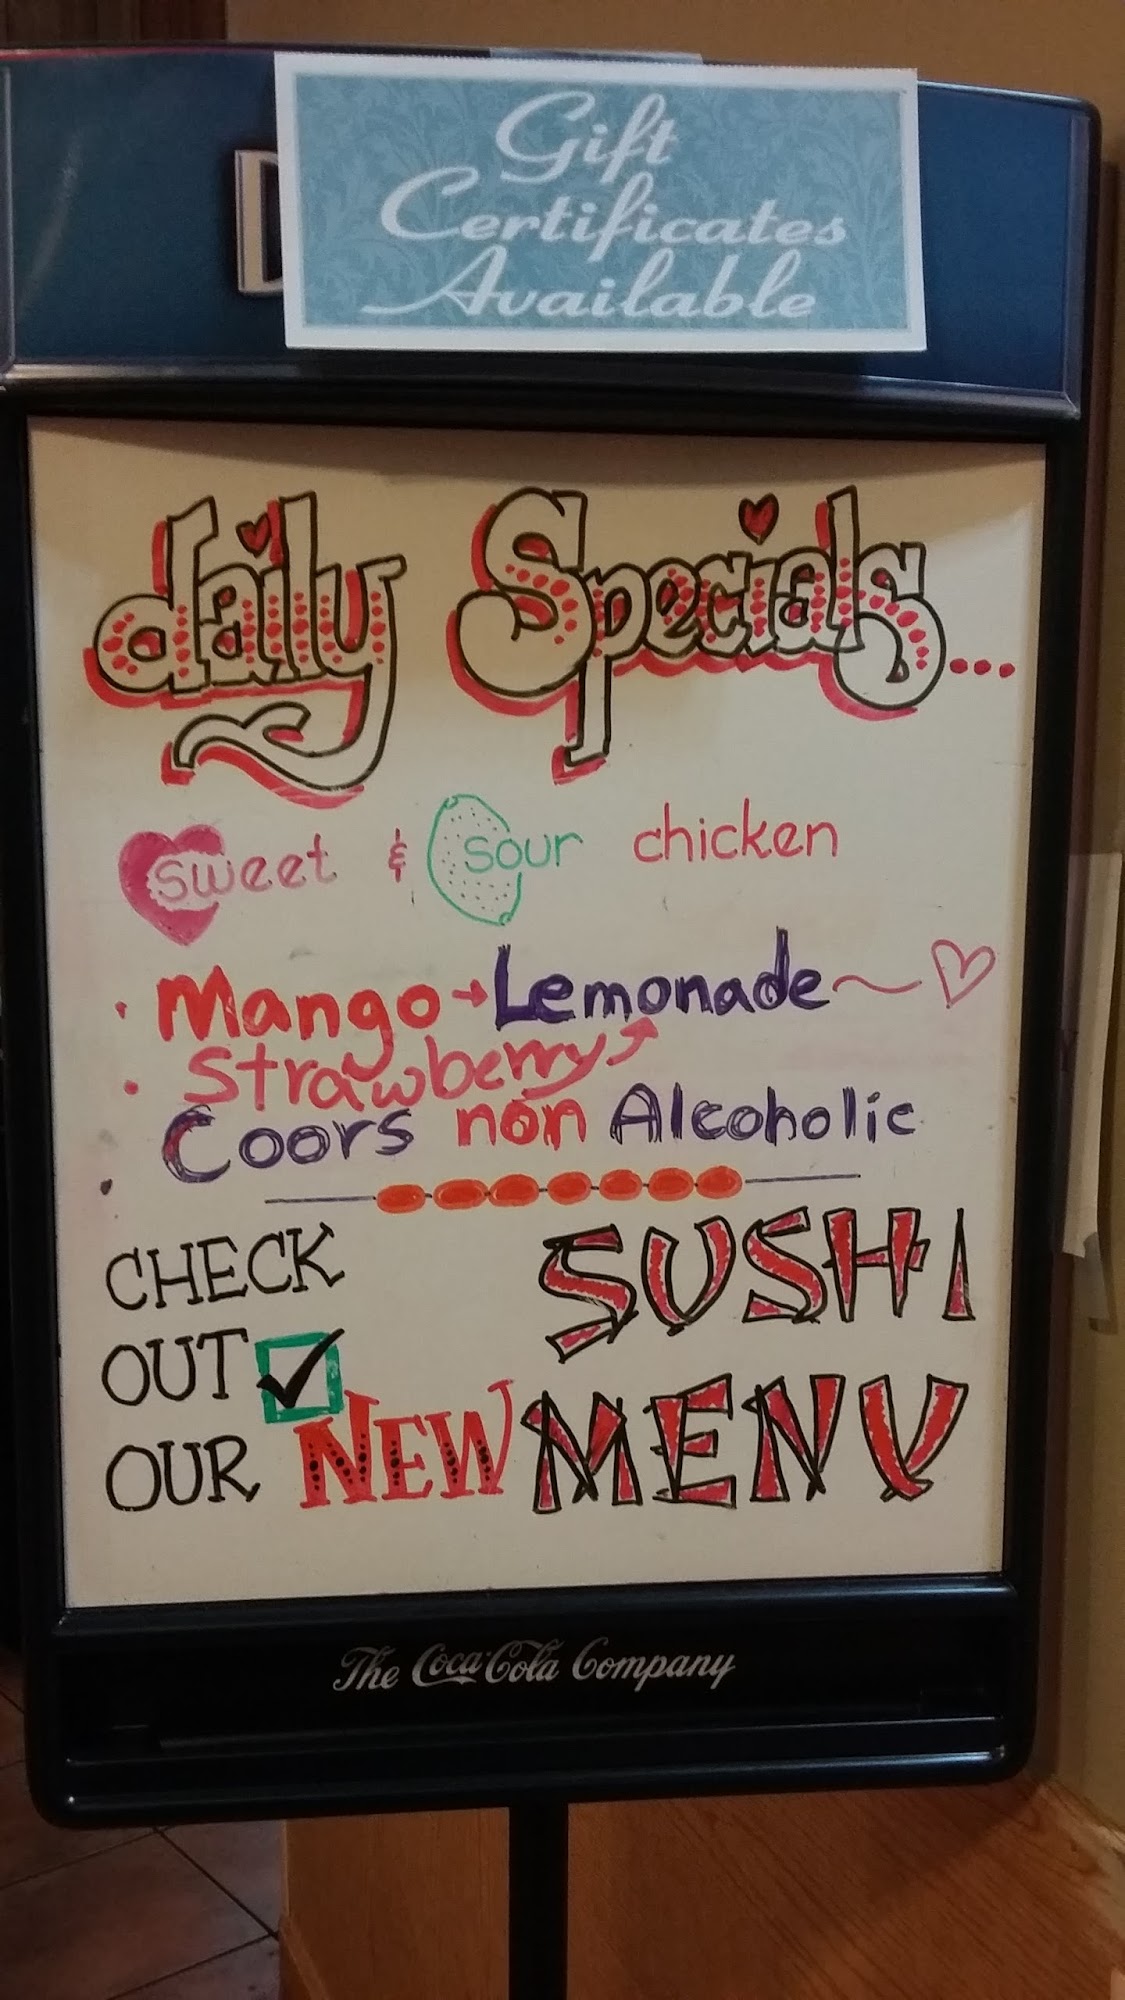 Gift
Certificates
Available
D
daily Specials...
sweet & sour chicken
Mango → Lemonade
Strawberry
Coors non Alcoholic
CHECK
OUT
OUR NEW
SUSHI
MENU
The Coca-Cola Company